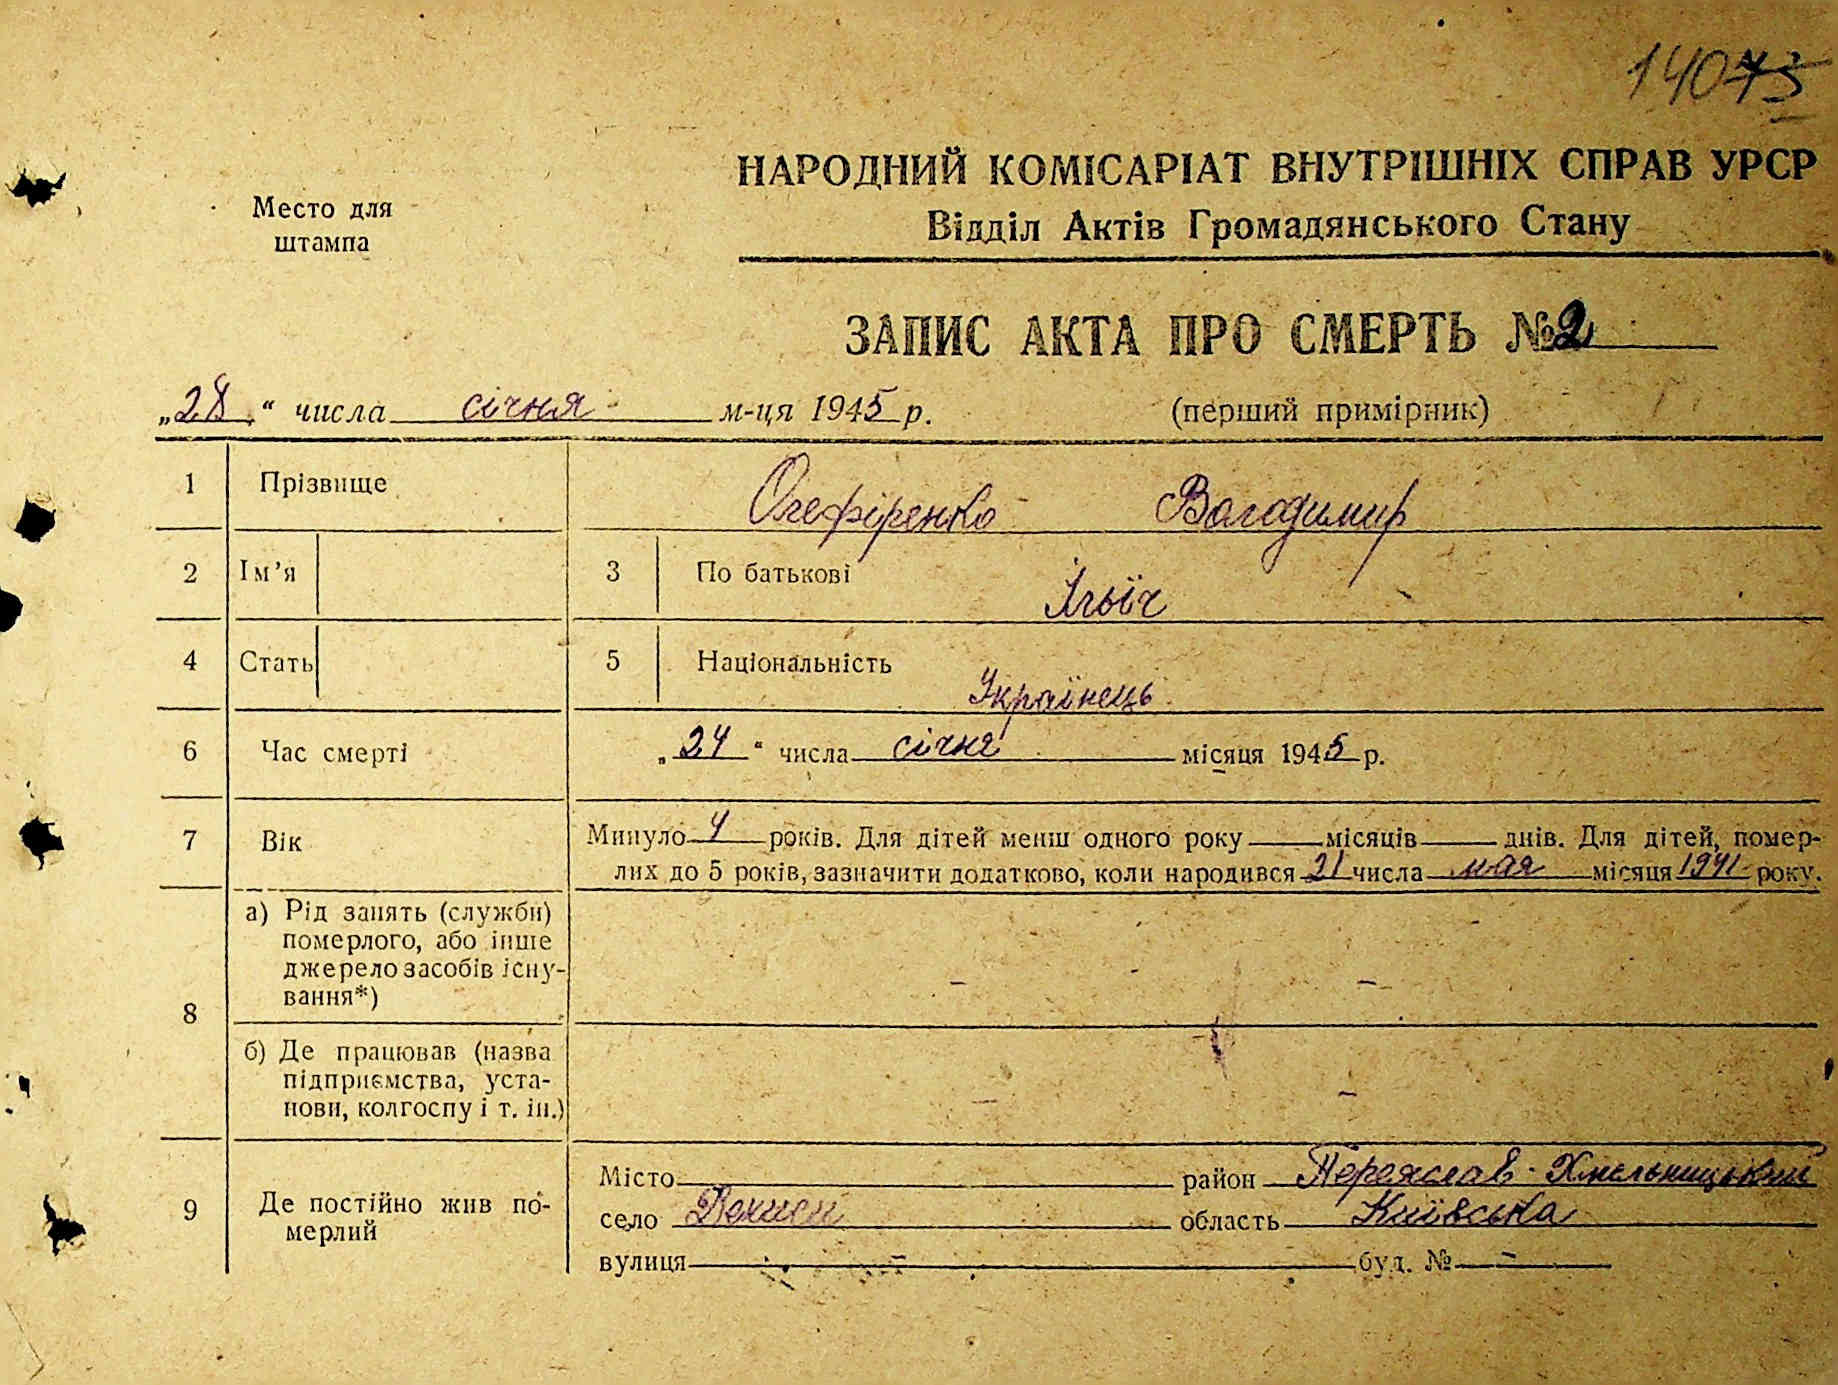 140
НАРОДНИЙ КОМІСАРІАТ ВНУТРІШНІХ СПРАВ УРСР
Відділ Актів Громадянського Стану
Место для
штампа
ЗАПИС АКТА ПРО СМЕРТЬ № 2
„28“ числа січня м-ця 1945 р. (перший примірник)
1 Прізвище Олефіренко Володимир
2 Ім’я 3 По батькові Ільїч
4 Стать 5 Національність Українець
6 Час смерті „24“ числа січня місяця 1945 р.
7 Вік Минуло 4 років. Для дітей менш одного року — місяців — днів. Для дітей, помер-
лих до 5 років, зазначити додатково, коли народився 21 числа мая місяця 1941 року.
8 а) Рід занять (служби)
померлого, або інше
джерело засобів існу-
вання*) – –
б) Де працював (назва
підприємства, уста-
нови, колгоспу і т. ін.) – –
9 Де постійно жив по-
мерлий
Місто район Переяслав-Хмельницький
село Демиси область Київська
вулиця – буд. № –